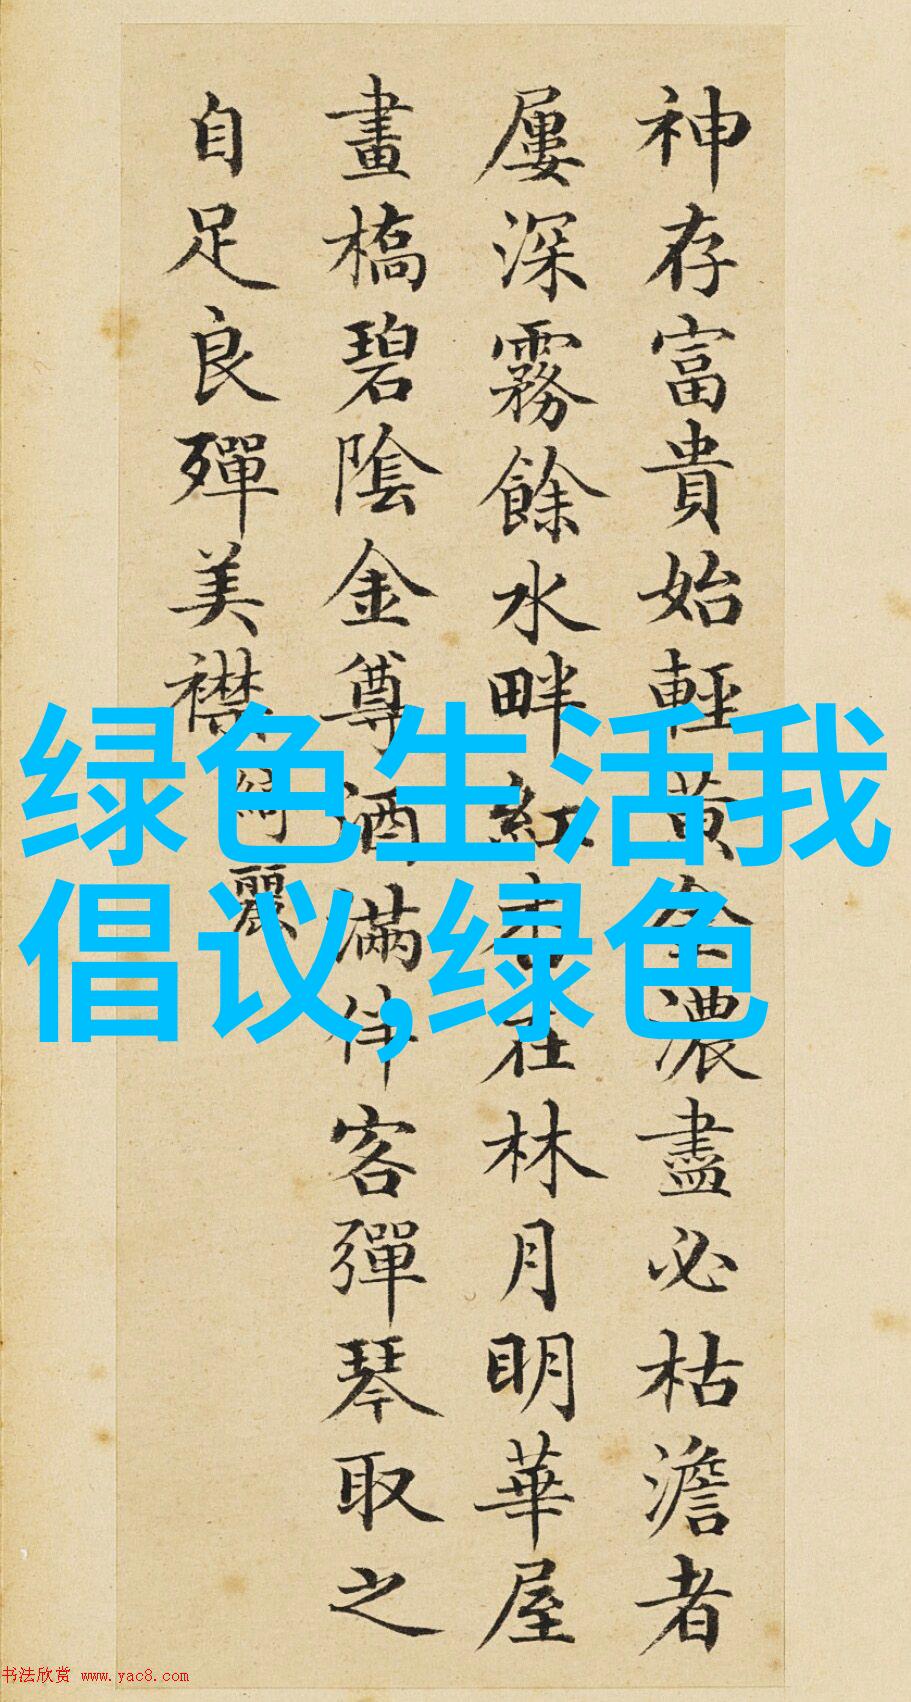 神存富貴始輕黃金濃盡必枯澹者
屢深霧餘水畔紅杏在林月明華屋
畫橋碧陰金尊酒滿伴客彈琴取之
自足良殫美襟綺麗
绿色生活我
倡议,绿色
书法欣赏 www.yac8.com